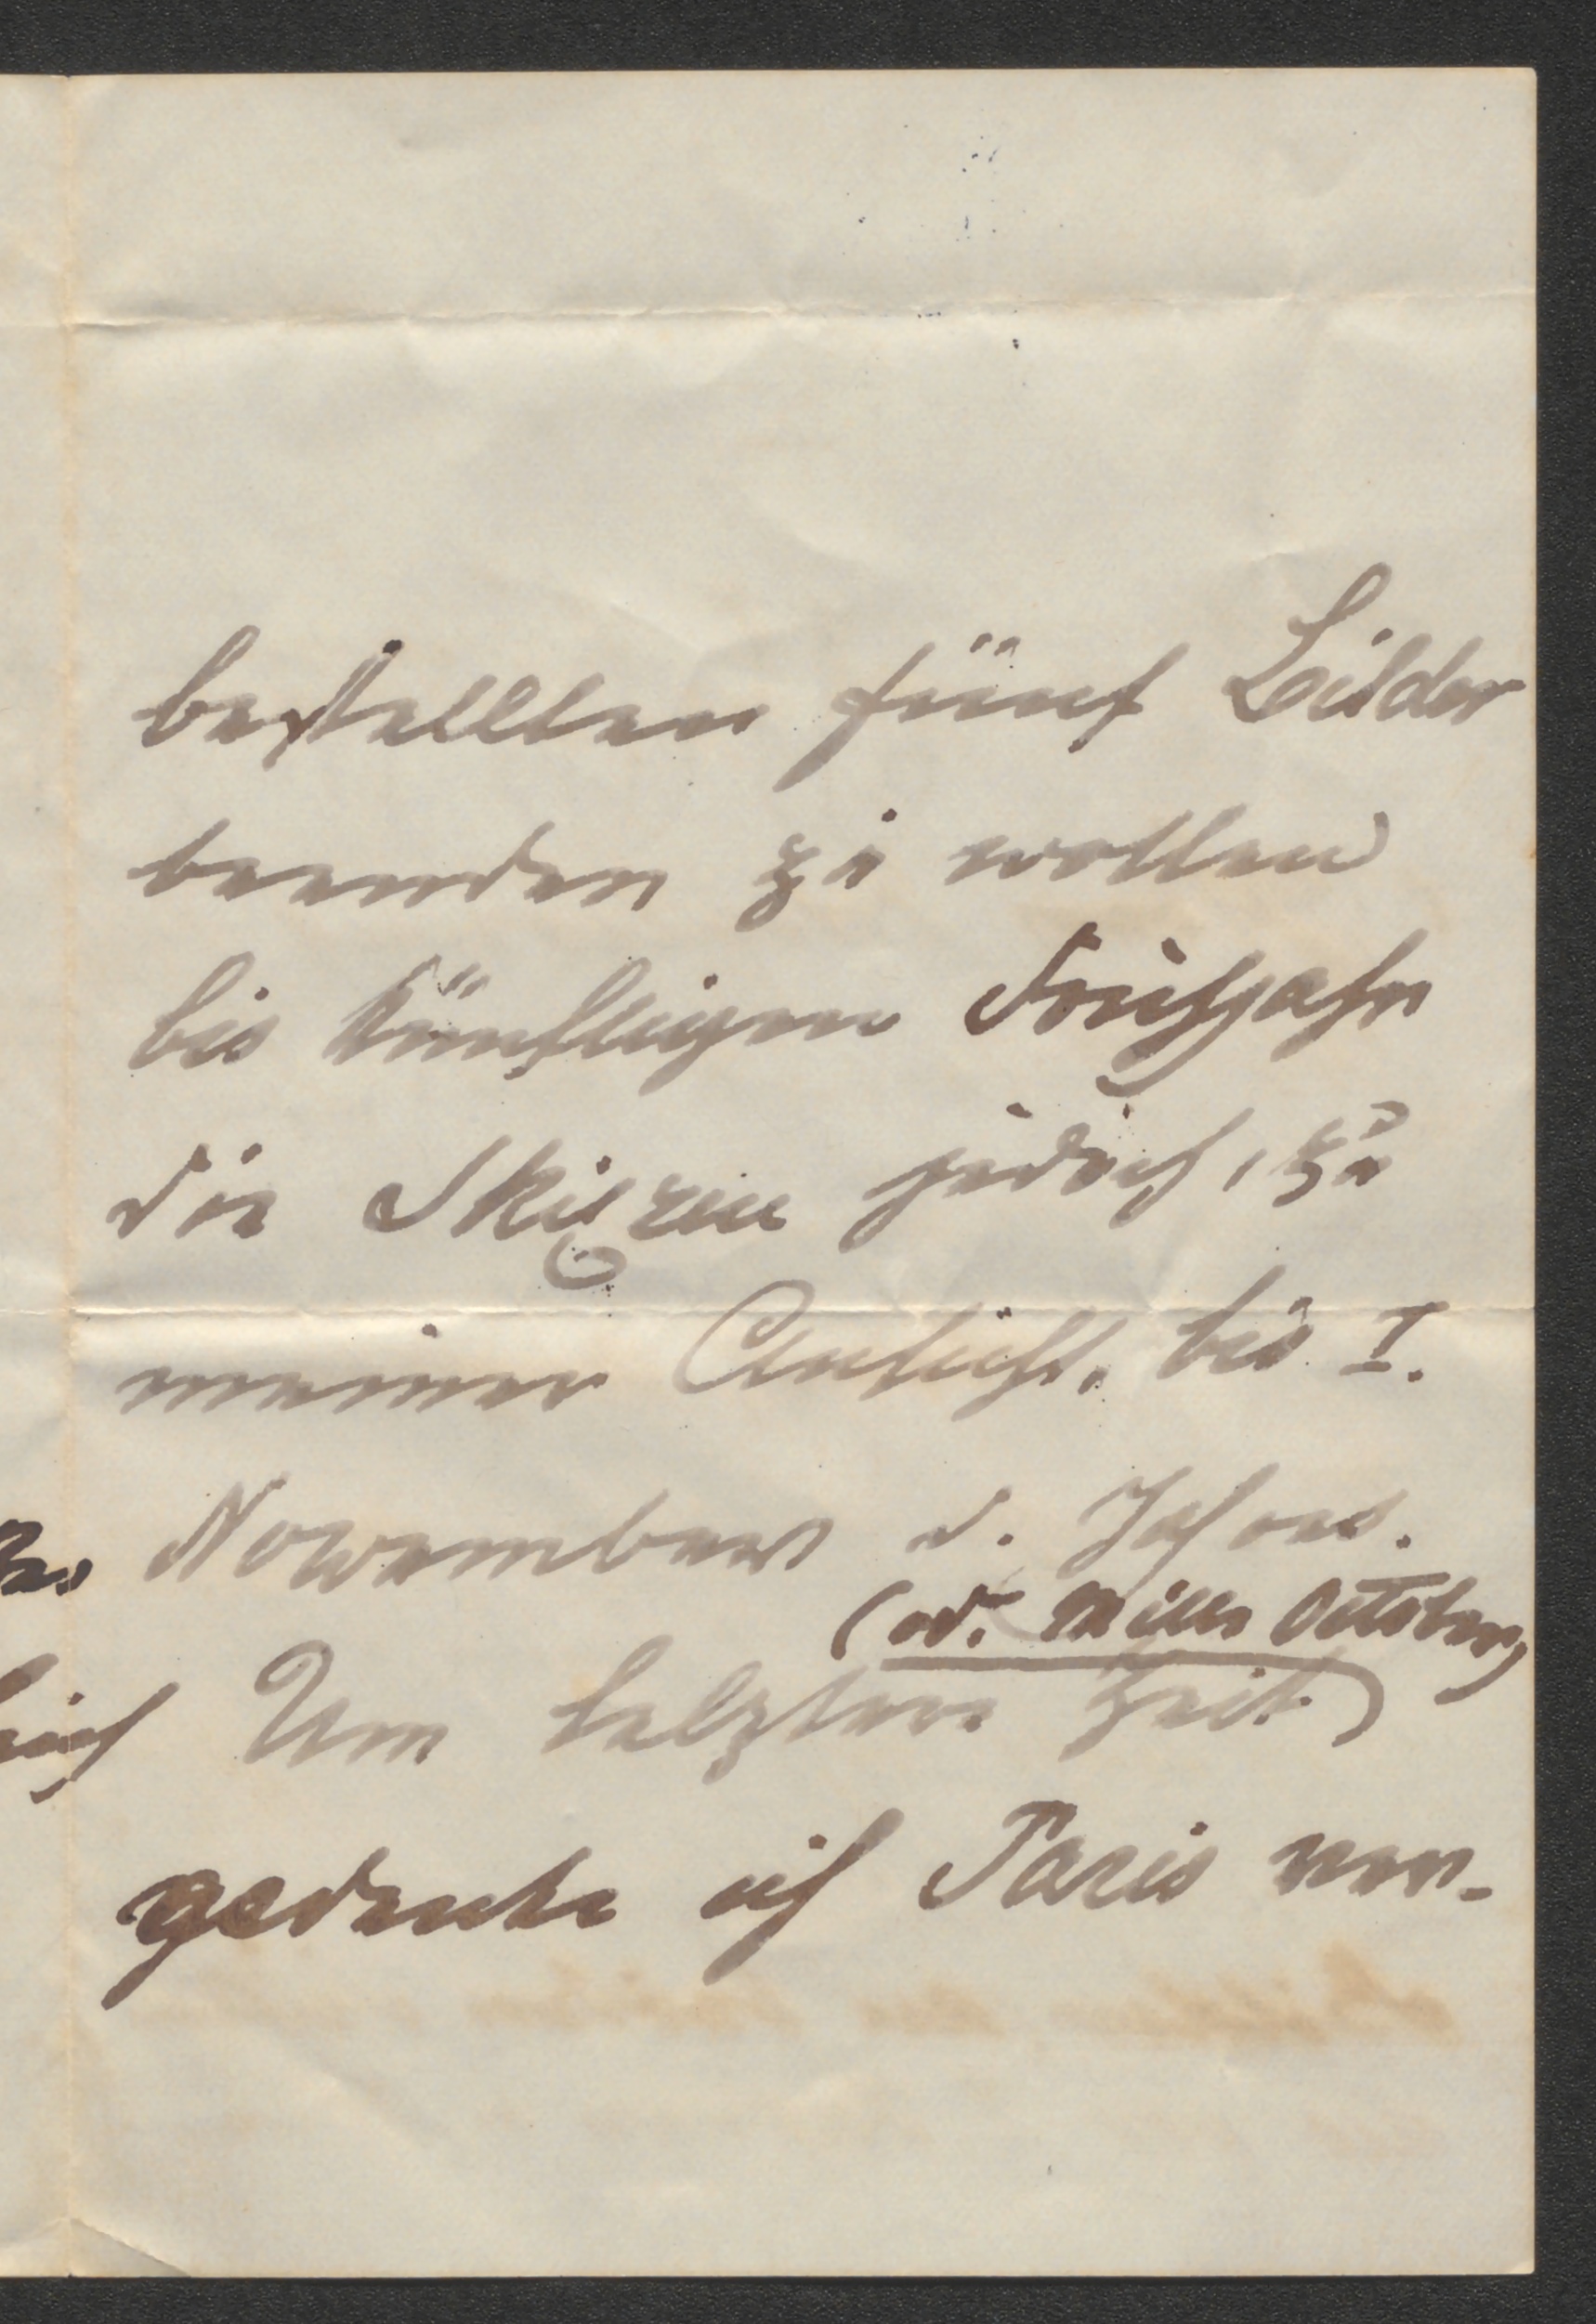 bestellten fünf Bilder
beenden zu wollen
bis künftigen Frühjahr
die Skizzen jedoch, zu
meiner Ansicht, bis I.
November d. Jahres.
(od. Mitte October)
Um letztere Zeit
gedenke ich Paris ver-